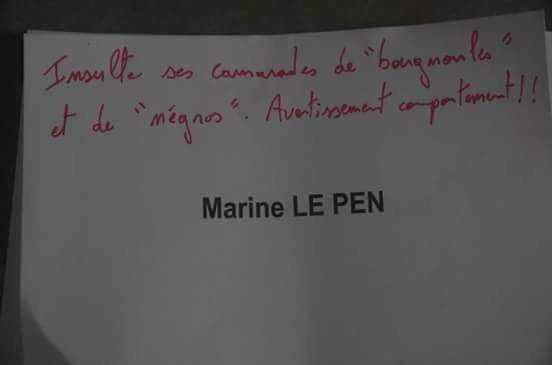 Insulte ses camarades de "bougnoules"
et de "négros". Avertissement comportement!!
Marine LE PEN